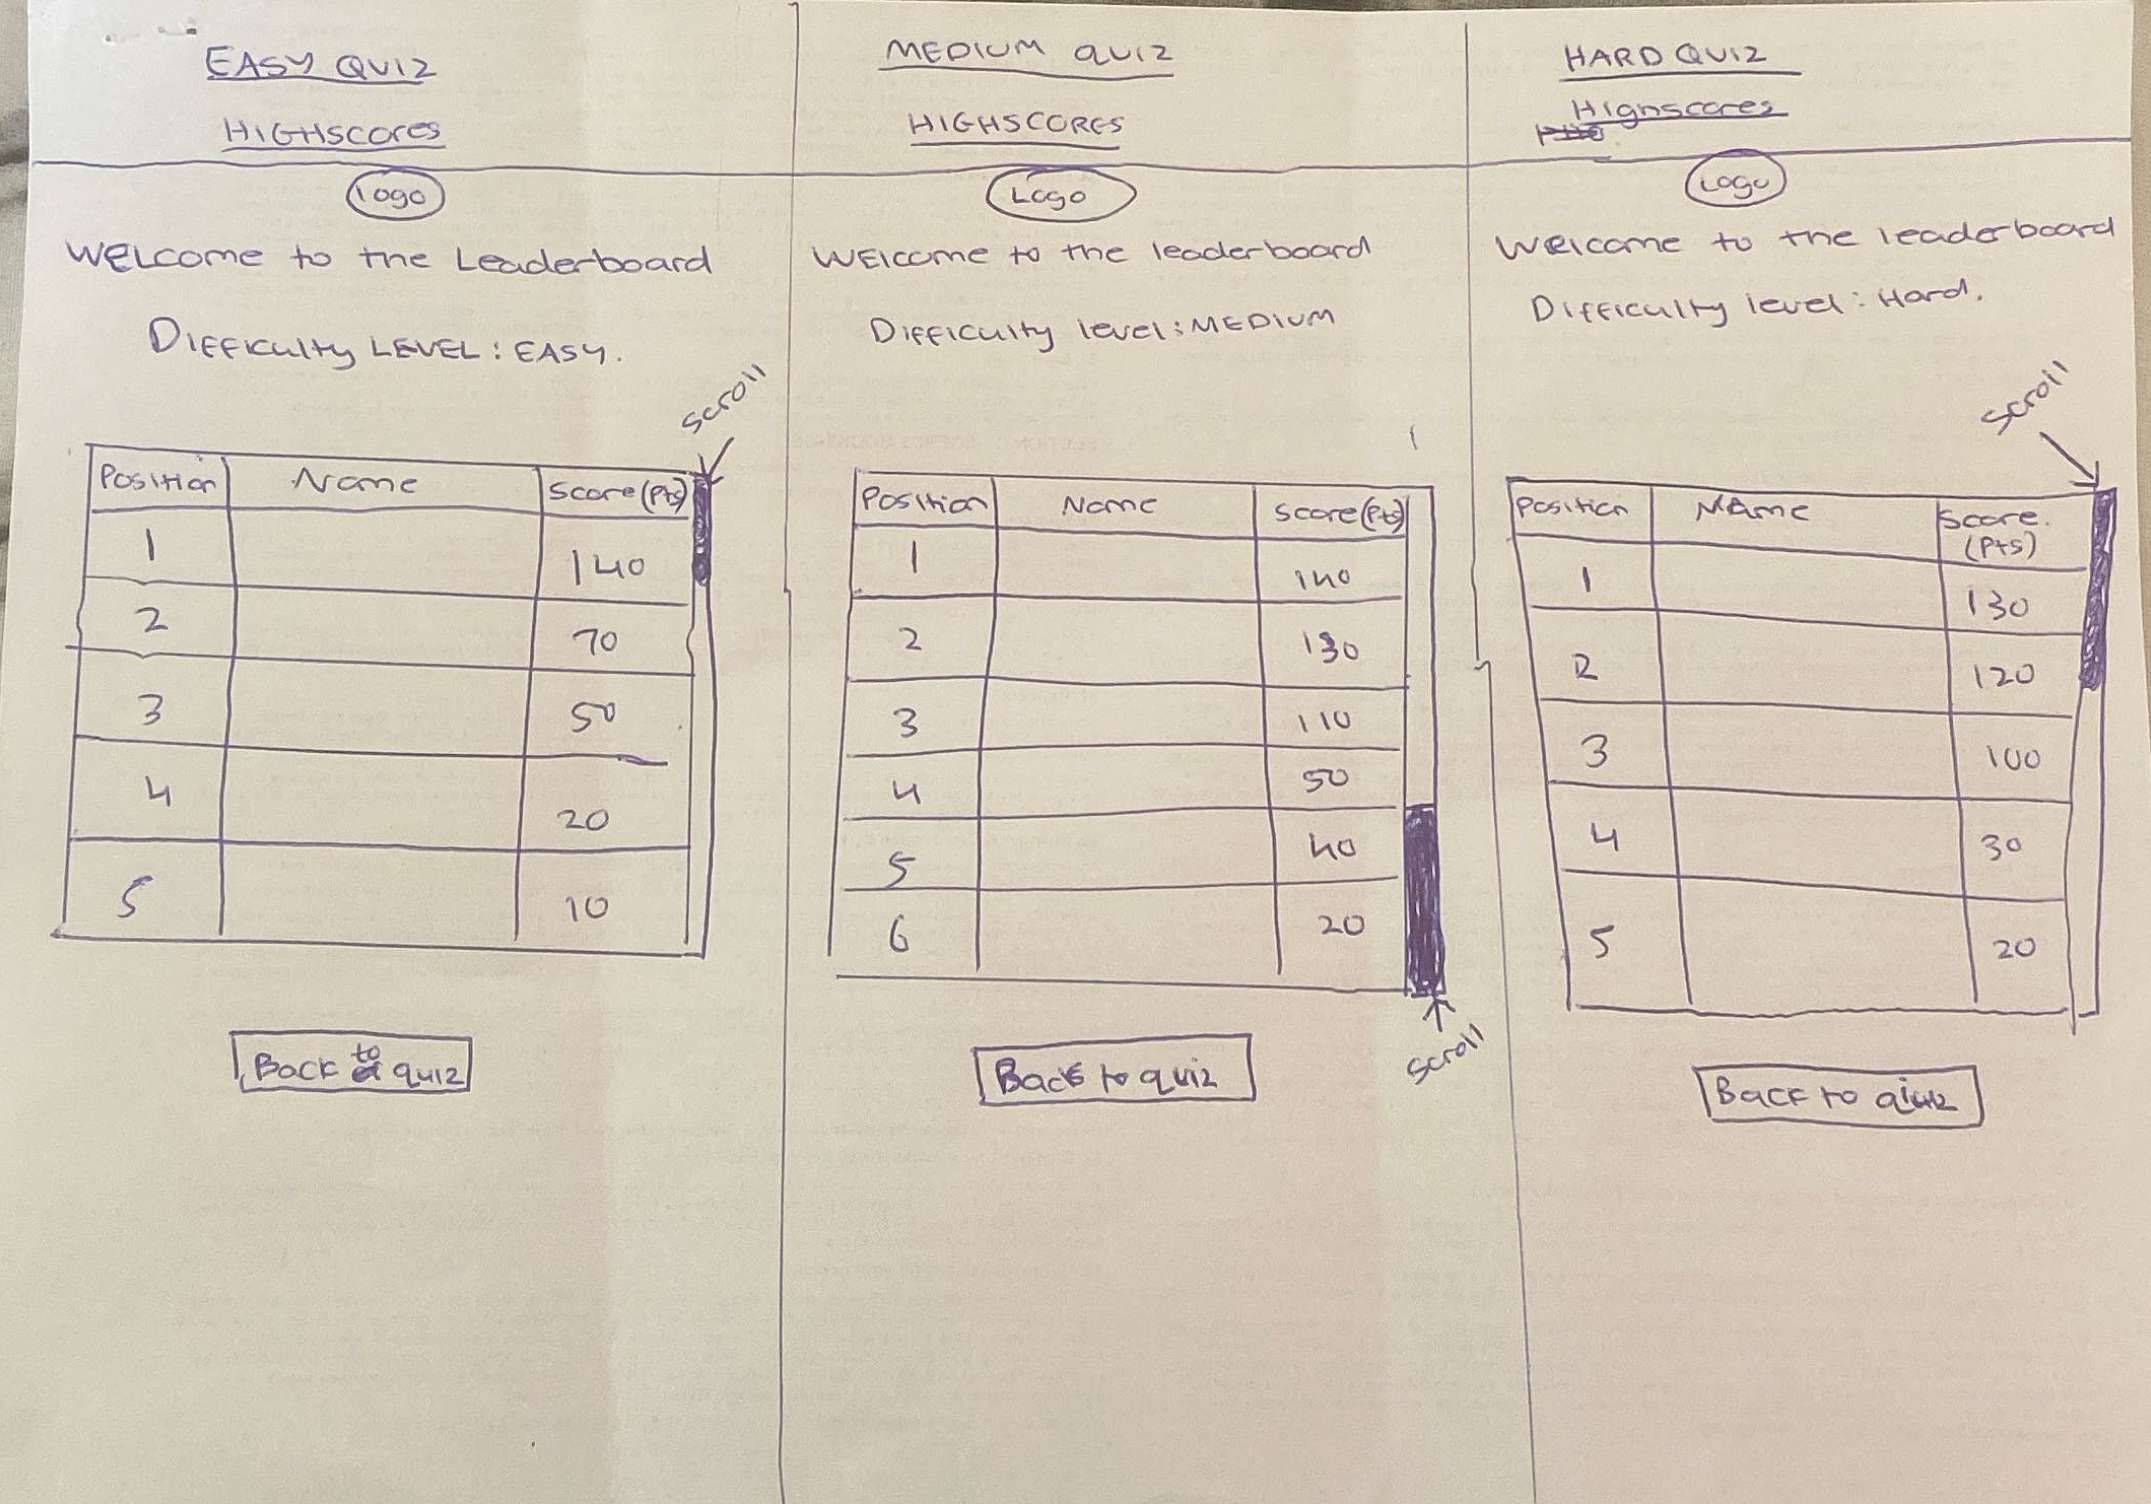 EASY QUIZ
HIGHSCORES
Logo
WELCOME to the Leaderboard
DIFFICULTY LEVEL: EASY.
scroll
Position Name Score(Pts)
1 140
2 70
3 50
4 20
5 10
Back to quiz
MEDIUM QUIZ
HIGHSCORES
Logo
WElcome to the leaderboard
Difficulty level: MEDIUM
Position Name Score(Pts)
1 140
2 130
3 110
4 50
5 40
6 20
scroll
Back to quiz
HARD QUIZ
Highscores
Logo
Welcome to the leaderboard
Difficulty level: Hard.
scroll
Position NAme Score.
(Pts)
1 130
2 120
3 100
4 30
5 20
Back to quiz